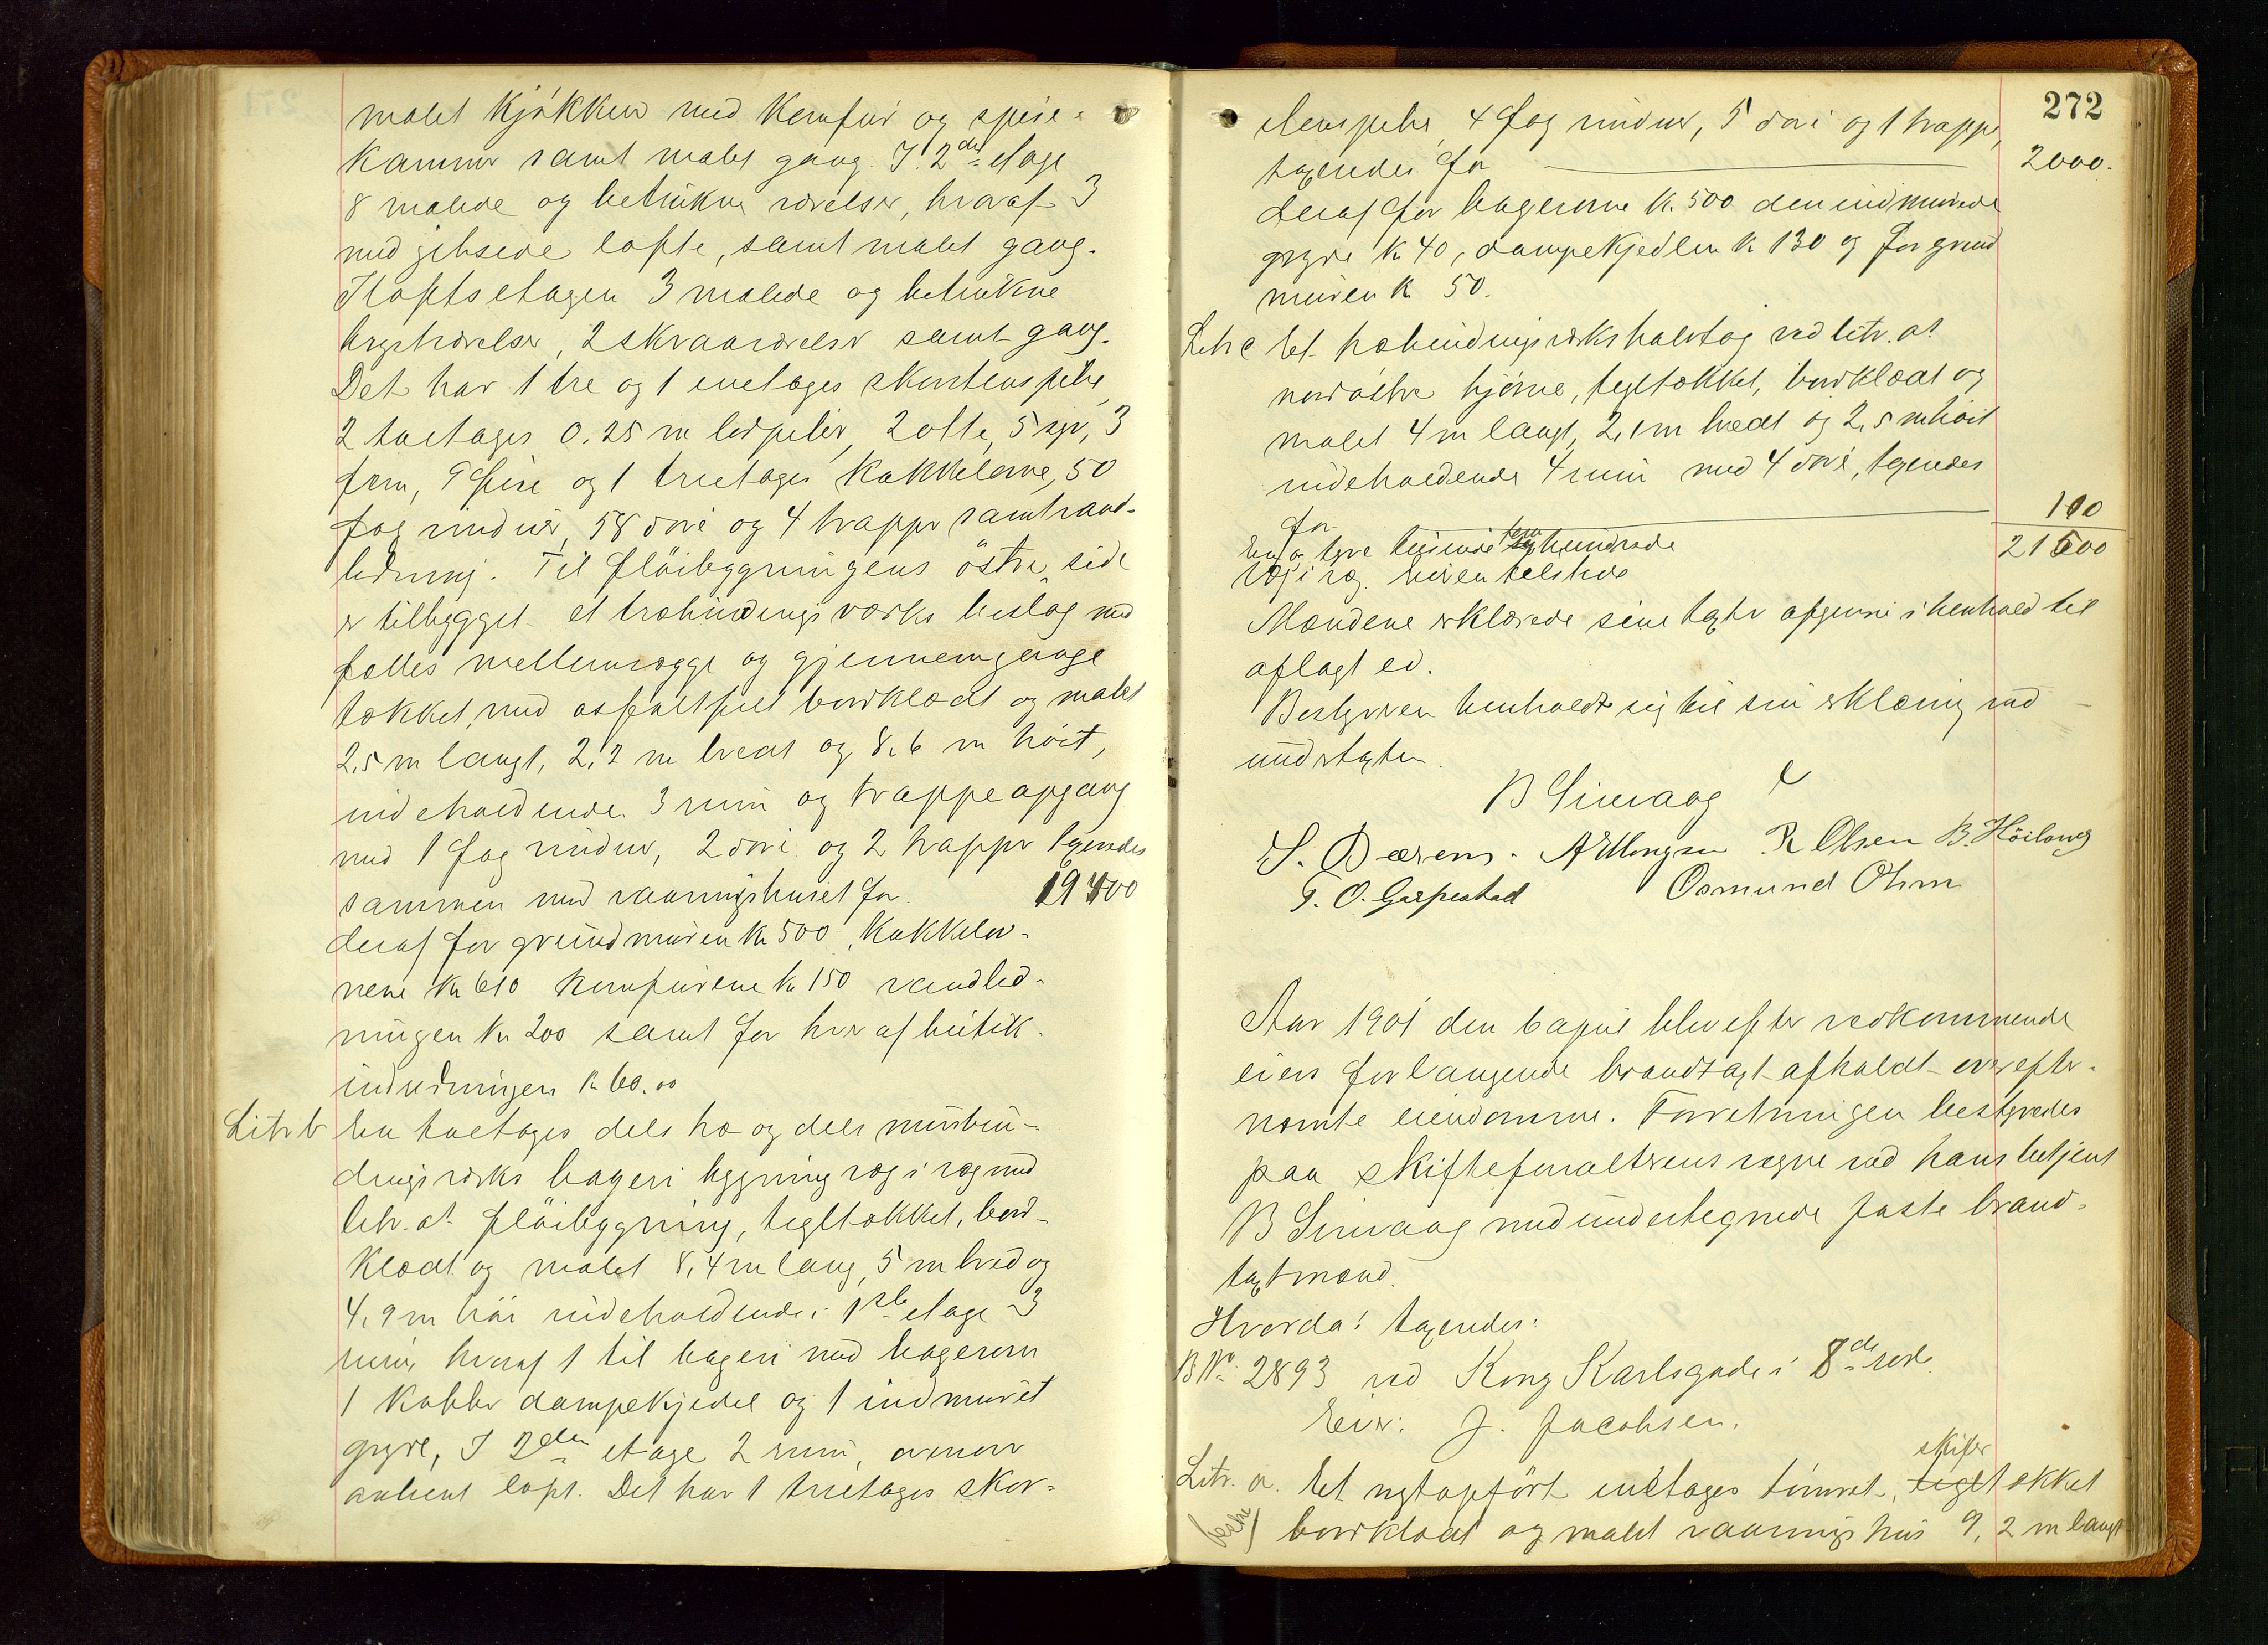 malet kjökken med komfur og spise-
kammer samt malet gang. I 2den etage
8 malede og betrukne værelser, hvoraf 3
med gibsede lofte, samt malet gang.
I loftsetagen 3 malede og betrukne
brystværelser, 2 skraaværelser samt gang.
Det har 1 tre og 1 enetages skorstenspibe,
2 toetages 0.25 m lerpiber, 2 otte, 5 syv, 3
fem, 9 fire og 1 treetages kakkelovne, 50
fag vinduer, 58 döre og 4 trapper samt vand-
ledning. Til flöibygningens östre side
er tilbygget et træbindingsværks bislag med
fælles mellemvægge og gjennemgange
tækket med asfaltfilt bordklædt og malet
2,5 m langt, 2,2 m bredt og 8,6 m höit,
indeholdende 3 rum og trappeopgang
med 1 fag vinduer, 2 döre og 2 trapper taxeredes
sammen med vaaningshuset for 19400
deraf for grundmuren kr 500, kakkelov-
nene kr 610 komfurene kr 150 vandled-
ningen kr 200 samt for hver af butik-
indredningen kr 60.00
Litr b En toetages dels træ og dels murbin-
dingsværks bageribygning væg i væg med
litr. a's flöibygning, tegltækket, bord-
klædt og malet 8,4 m lang, 5 m bred og
4,9 m höi indeholdende i 1ste etage 3
rum hvoraf 1 til bageri med bagerovn
1 kobber dampekjedel og 1 indmuret
gryde, I 2den etage 2 rum, ovenover
aabent loft. Det har 1 treetages skor-
272
stenspibe, 4 fag vinduer, 5 döre og 1 trappe,
taxeredes for 2000.
deraf for bagerovne kr. 500 den indmurede
gryde kr 40, dampekjedlen kr 130 og for grund
muren kr 50.
Litr c Et træbindingsværks halvtag ved litr. a's
nordöstre hjörne, tegltækket, bordklædt og
malet 4 m langt, 2,1 m bredt og 2,5 m höit
indeholdende 4 rum med 4 döre, taxeredes
for 100
En og tyve tusinde fem hundrede 21500
væg i væg
Mændene erklærede sine taxter afgivne i henhold til
aflagt ed.
Bestyreren henholdt sig til sin erklæring ved
undertaxten.
B Sirevaag
S. Bærens. A Ellingsen R Olsen B. Höiland
T. O. Gaspestad Osmund Ohm
Aar 1901 den 6 april blev efter vedkommende
eiers forlangende brandtaxt afholdt over efter-
nævnte eiendomme. Forretningen bestyredes
paa skifteforvalterens vegne ved hans betjent
B Sirevaag med undertegnede faste brand-
taxtmænd.
Hvorda! taxeredes:
B No. 2893 ved Kong Karlsgade i 8de rode
Eier: J. Jacobsen.
Litr. a. Et nytopfört enetages tömret, skifer tegltækket
bordklædt og malet vaaningshus 9,2 m langt